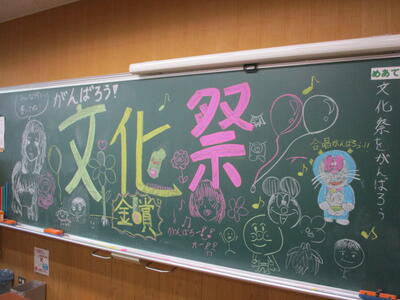 がんばろう!
文化祭
金賞
がんばろー!!
オー!!
合唱がんばろう!!
めあて
文化祭をがんばろう